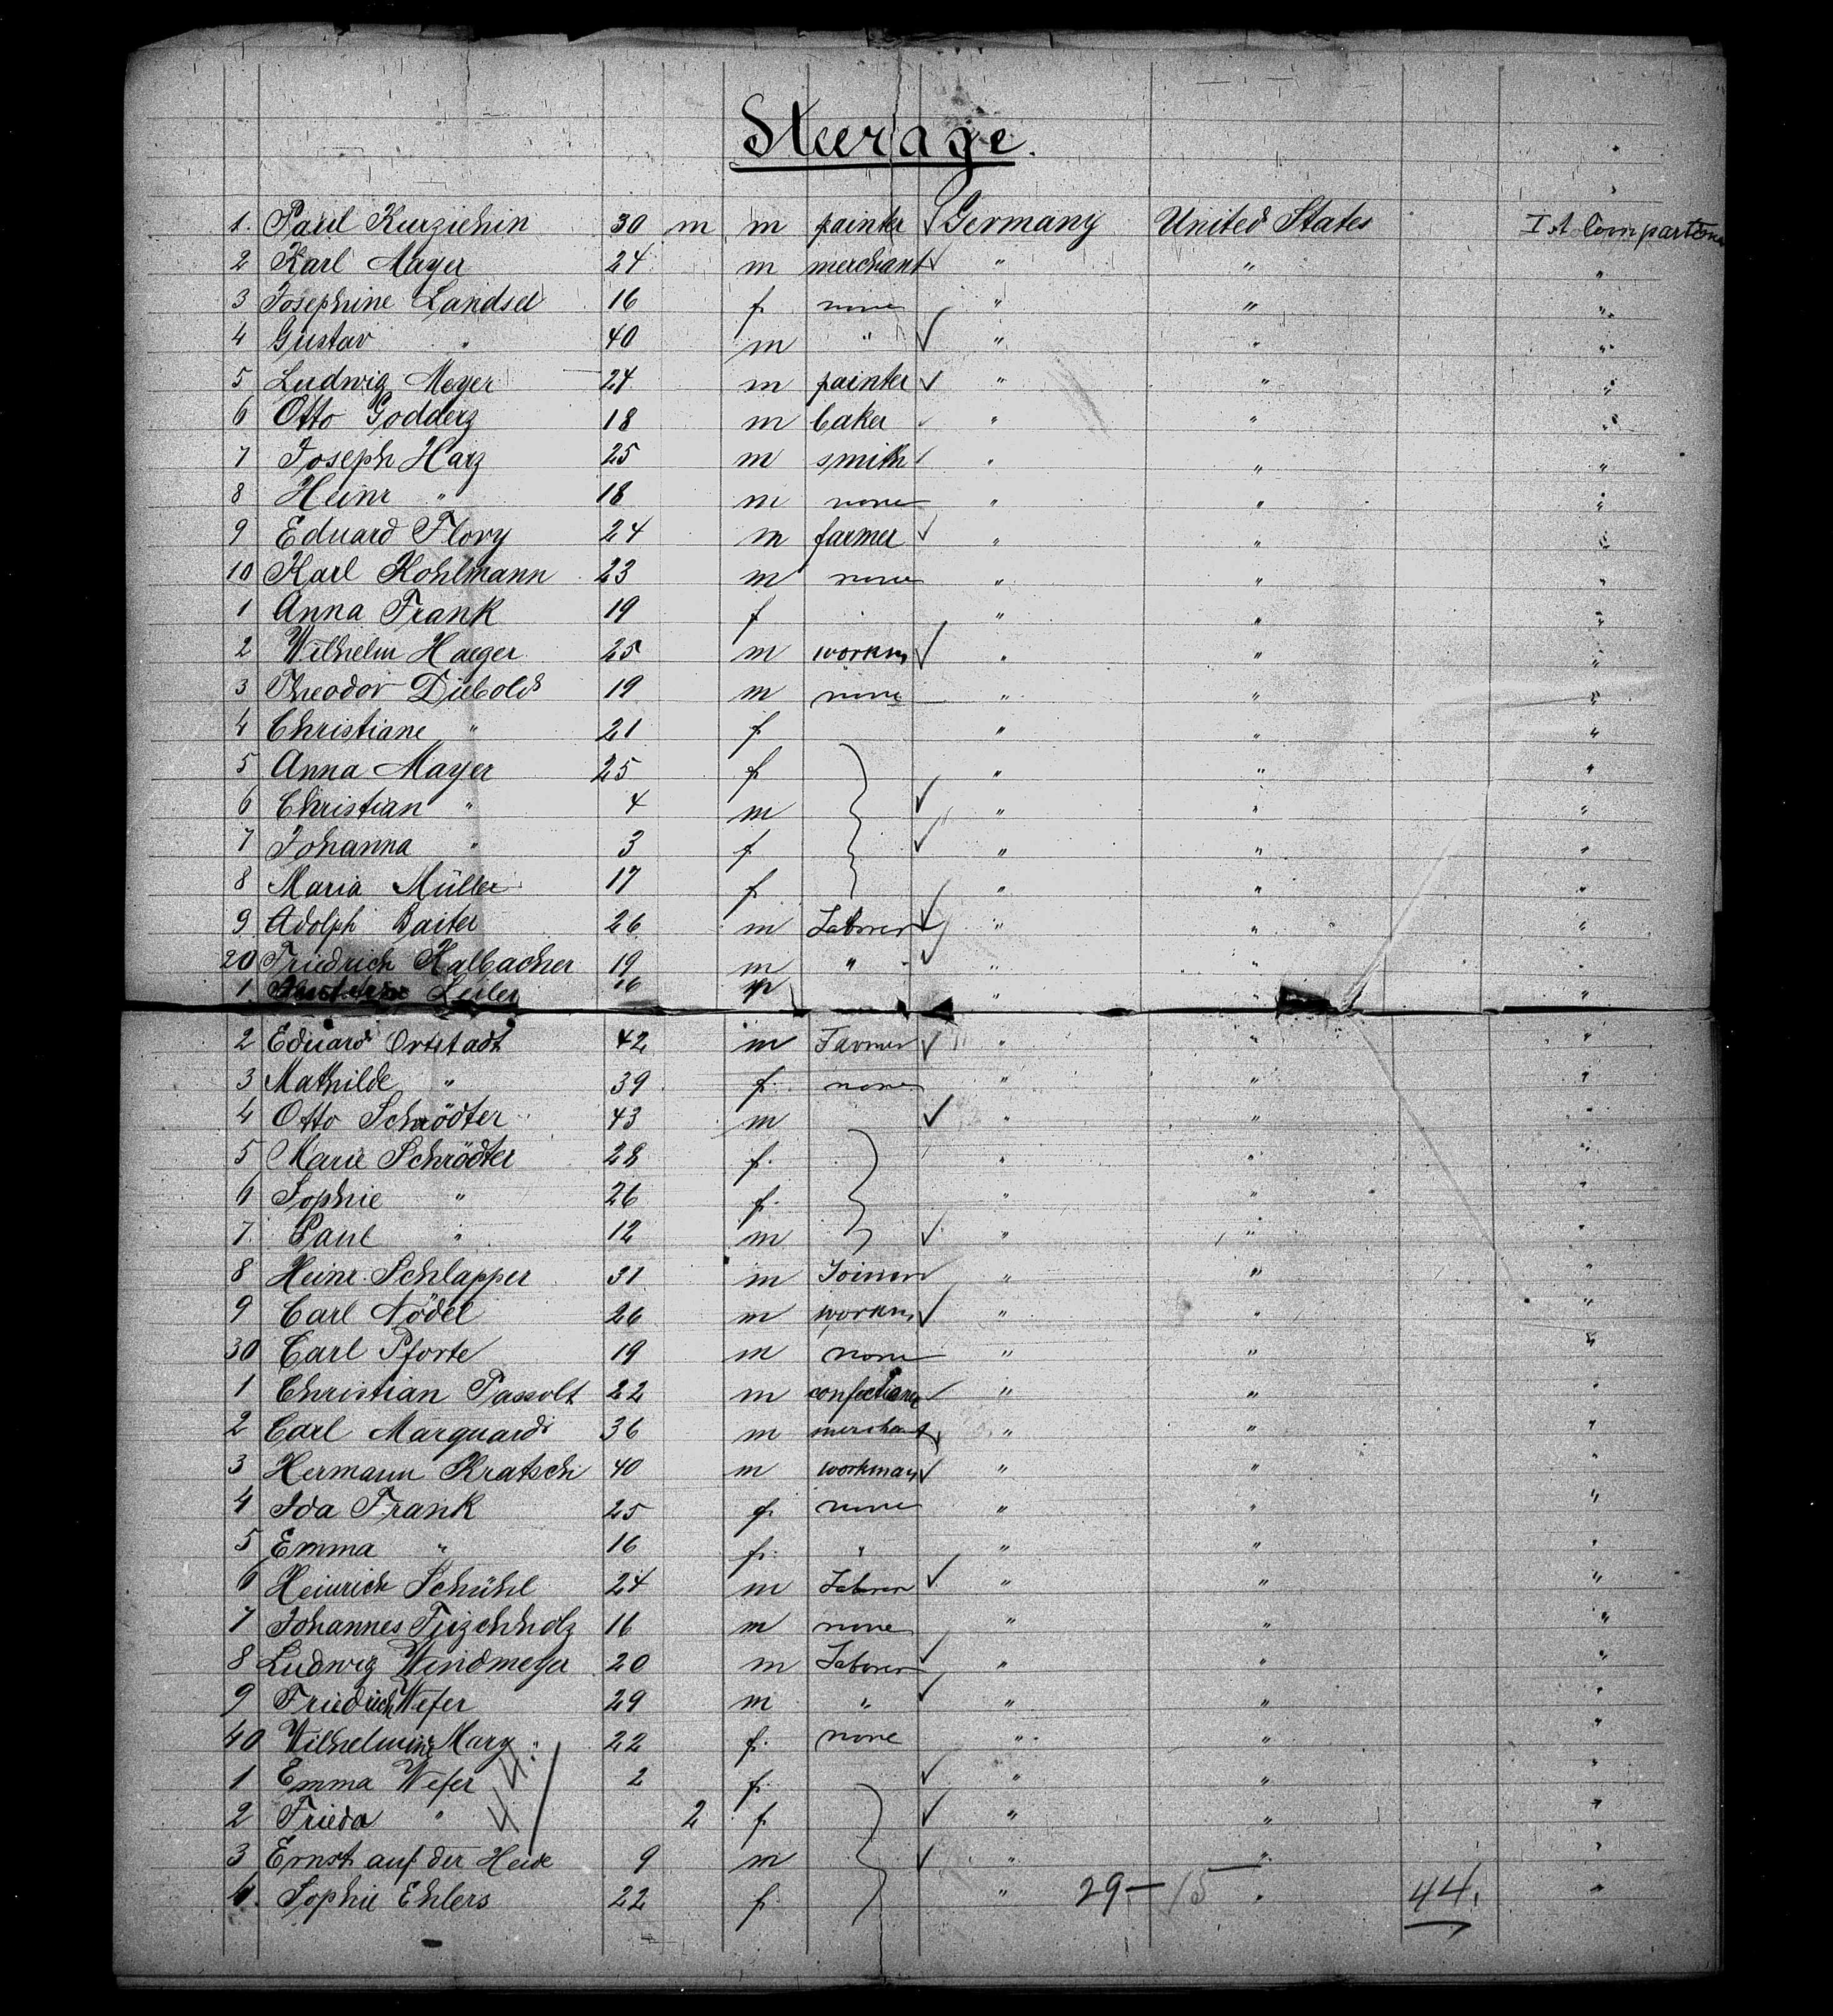 Steerage.
1. Paul Kurziehin 30 m m painter ✓ Germany United States 1st Compartm
2 Karl Mayer 24 m merchant ✓ " " "
3 Josephine Landsel 16 f. none " " "
4 Gustav " 40 m " ✓ " " "
5 Ludwig Meyer 24 m painter ✓ " " "
6 Otto Godderz 18 m baker ✓ " " "
7 Joseph Harz 25 m smith ✓ " " "
8 Heinr " 18 m none " " "
9 Eduard Flory 24 m farmer ✓ " " "
10 Karl Kohlmann 23 m none " " "
1 Anna Frank 19 f " " "
2 Wilhelm Haeger 25 m workm ✓ " " "
3 Theodor Diebold 19 m none " " "
4 Christiane " 21 f " " "
5 Anna Mayer 25 f " " "
6 Christian " 4 m ✓ " " "
7 Johanna " 3 f ✓ " " "
8 Maria Müller 17 f " " "
9 Adolph Baiter 26 m Laborer ✓ " " "
20 Friedrich Halbacher 19 m " ✓ " " "
1 Leiler 16 " " "
2 Eduard Ortstadt 42 m Farmer ✓ " " "
3 Mathilde " 39 f. none " " "
4 Otto Schrödter 43 m ✓ " " "
5 Marie Schrödter 28 f. " " "
6 Sophie " 26 f. " " "
7. Paul " 12 m ✓ " " "
8 Heinr. Schlapper 31 m Joiner ✓ " " "
9 Carl Nödel 26 m workm ✓ " " "
30 Carl Pforte 19 m none " " "
1 Christian Passolt 22 m confectioner ✓ " " "
2 Carl Marquard 36 m merchant ✓ " " "
3 Hermann Kratsch 40 m workman ✓ " " "
4 Ida Frank 25 f none " " "
5 Emma " 16 f. " " " "
6 Heinrich Schühl 24 m Laborer ✓ " " "
7 Johannes 16 m none " " "
8 Ludwig Windmeyer 20 m Laborer ✓ " " "
9 Friedrich Wefer 29 m " ✓ " " "
40 Wilhelmine Mary 22 f. none " " "
1 Emma Wefer 2 f. ✓ " " "
2 Frieda " 2 f ✓ " " "
3 Ernst auf der Heide 9 m ✓ " " "
4. Sophie Ehlers 22 f " 29 — 15 " 44. "
44.